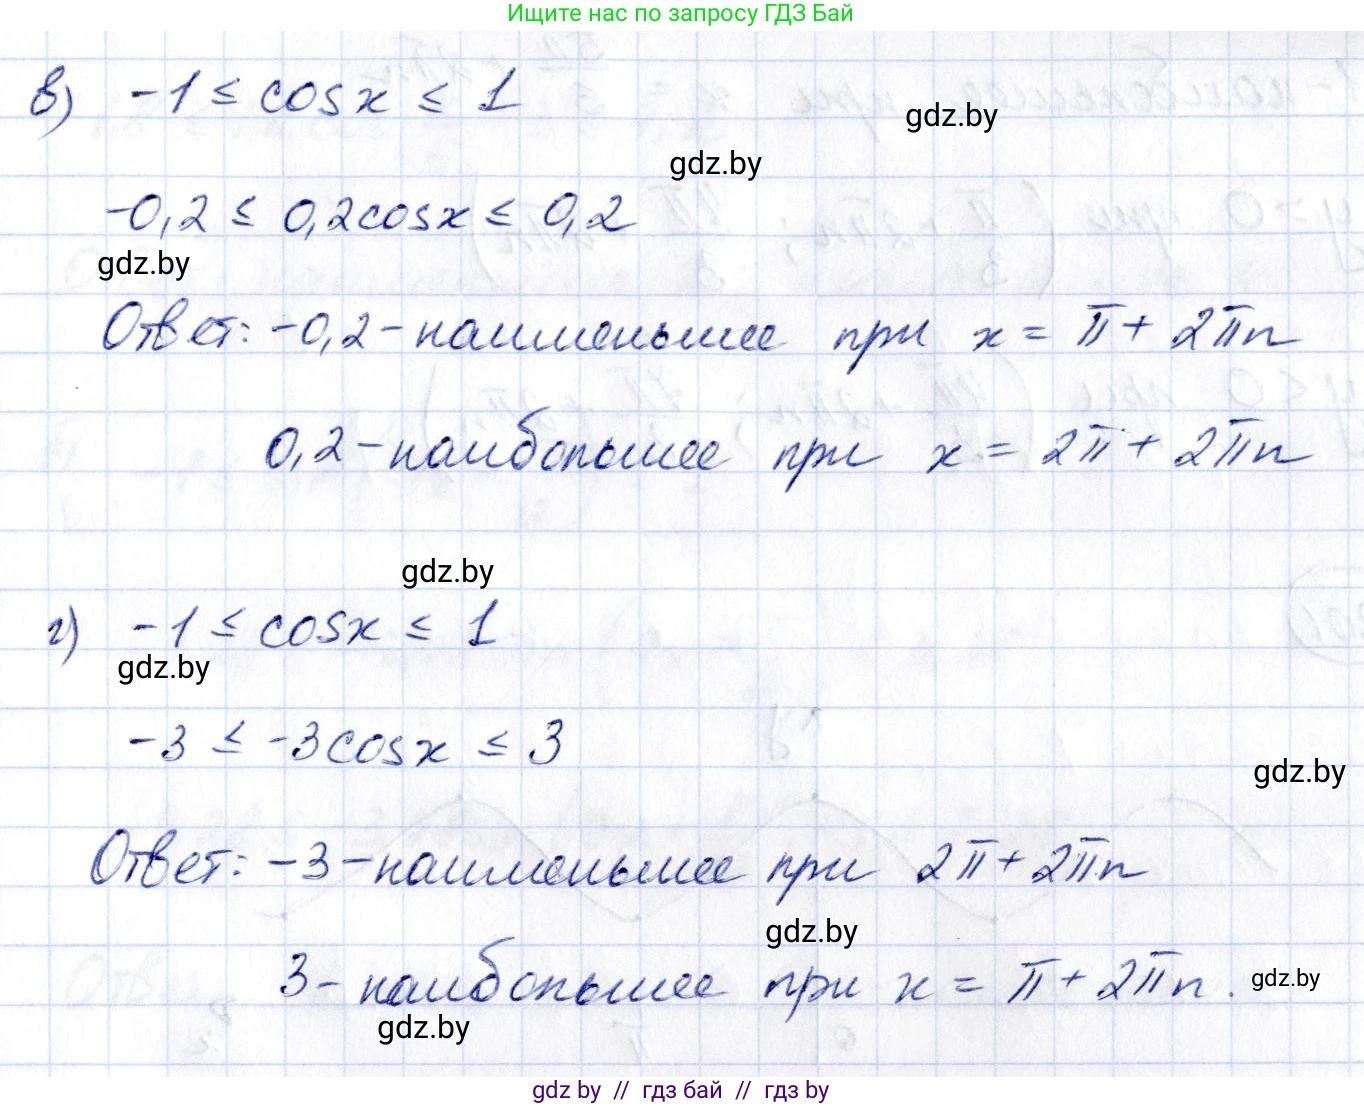 Ищите нас по запросу ГДЗ Бай
в) -1 ≤ cosx ≤ 1
gdz.by
gdz.by
-0,2 ≤ 0,2cosx ≤ 0,2
gdz.by
Ответ: -0,2 - наименьшее при x = π + 2πn
0,2 - наибольшее при x = 2π + 2πn
gdz.by
г) -1 ≤ cosx ≤ 1
gdz.by
-3 ≤ -3cosx ≤ 3
gdz.by
Ответ: -3 - наименьшее при 2π + 2πn
gdz.by
3 - наибольшее при x = π + 2πn.
gdz.by
gdz.by
gdz by // гдз бай // гдз by